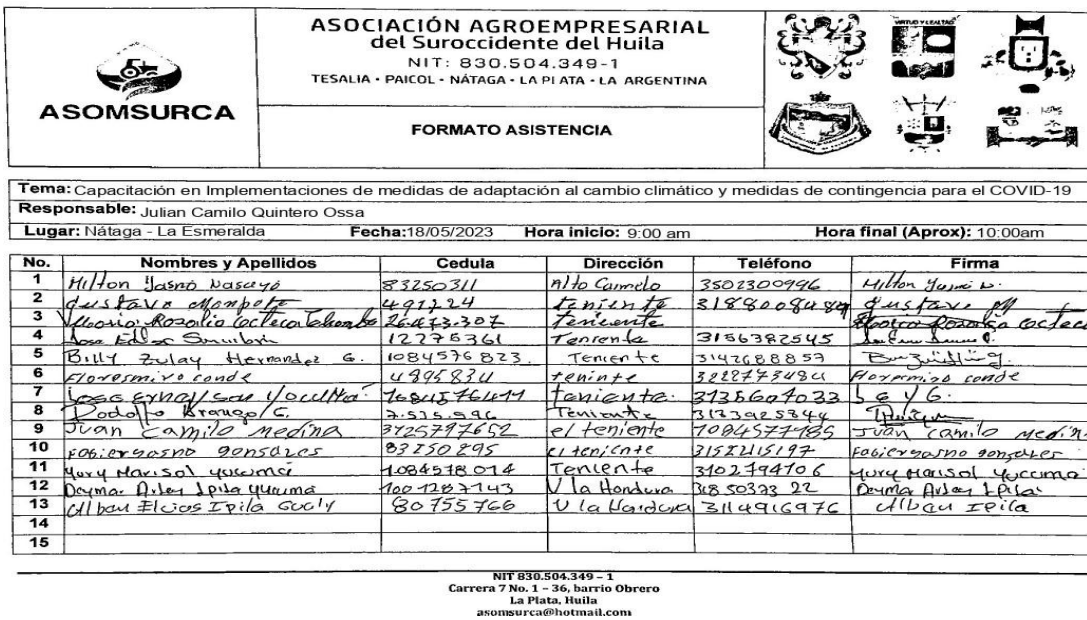 ASOMSURCA
ASOCIACIÓN AGROEMPRESARIAL
del Suroccidente del Huila
NIT: 830.504.349-1
TESALIA - PAICOL - NÁTAGA - LA PLATA - LA ARGENTINA
FORMATO ASISTENCIA
VIRTUD Y LEALTAD
Tema: Capacitación en Implementaciones de medidas de adaptación al cambio climático y medidas de contingencia para el COVID-19
Responsable: Julian Camilo Quintero Ossa
Lugar: Nátaga - La Esmeralda Fecha:18/05/2023 Hora inicio: 9:00 am Hora final (Aprox): 10:00am
No. Nombres y Apellidos Cedula Dirección Teléfono Firma
1 Milton Yasno 83250311 Alto Carmelo 3502300996 Milton
2 Gustavo Mompote 491224 teniente Gustavo M
3 Rosalia 26.473.307 teniente Rosalia
4 Jose 12275361 Teniente 3156382545
5 Billy Zulay Hernandez G. 1084576823. Teniente 3142688857
6 Floresmiro conde 4895834 teninte 3222773484 Floresmiro conde
7 teniente. 3135607033 L e y G.
8 Rodolfo Arango C. 7.535.996 Teniente 3133925844
9 Juan camilo medina 3125797652 el teniente 1084577985 Juan camilo medin
10 Fabier yasno gonsales 83250295 el teniente 3152115197 Fabier yasno gonsales
11 Yury Marisol yucuma 1.084578014 Teniente 3102794106 Yury Marisol Yucuma
12 Deymar Arley Ipila yucuma 1001287143 V la Hondura 318 50373 22 Deymar Arley Ipila
13 Alban Elcias Ipila 80755766 V la Hondura 3114916976 Alban Ipila
14
15
NIT 830.504.349 – 1
Carrera 7 No. 1 – 36, barrio Obrero
La Plata, Huila
asomsurca@hotmail.com